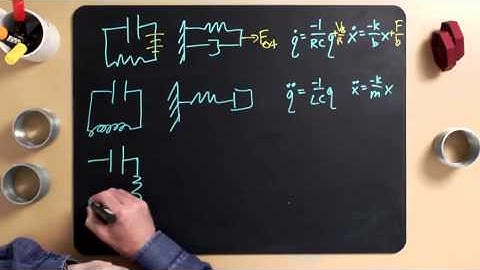 F_ext q̇ = -1/RC q + V_B/R ẋ = -k/b x + F/b
q̈ = -1/LC q ẍ = -k/m x